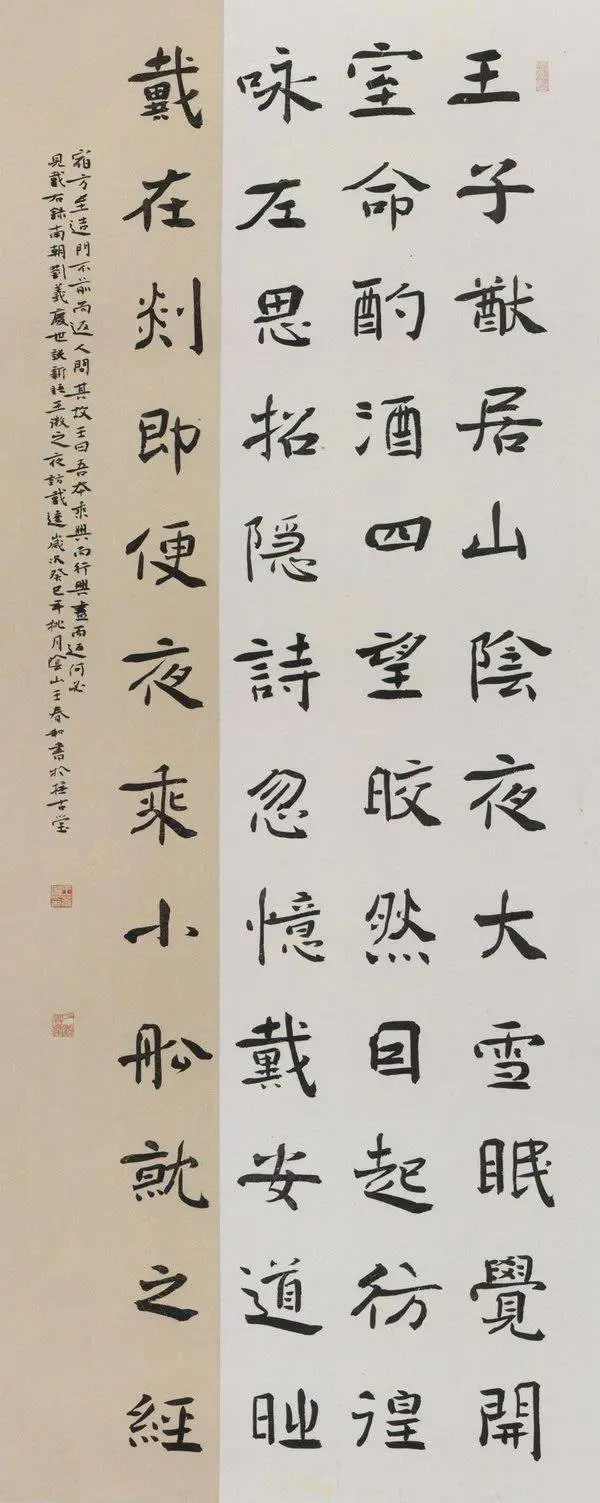 王子猷居山陰夜大雪眠覺開
室命酌酒四望晈然因起彷徨
咏左思招隐詩忽憶戴安道時
戴在剡即便夜乘小船就之經
宿方至造門不前而返人問其故王曰吾本乘興而行興盡而返何必
見戴右錄南朝劉義慶世說新語王徽之夜訪戴逵歲次癸巳年桃月陰山王春如書於古堂